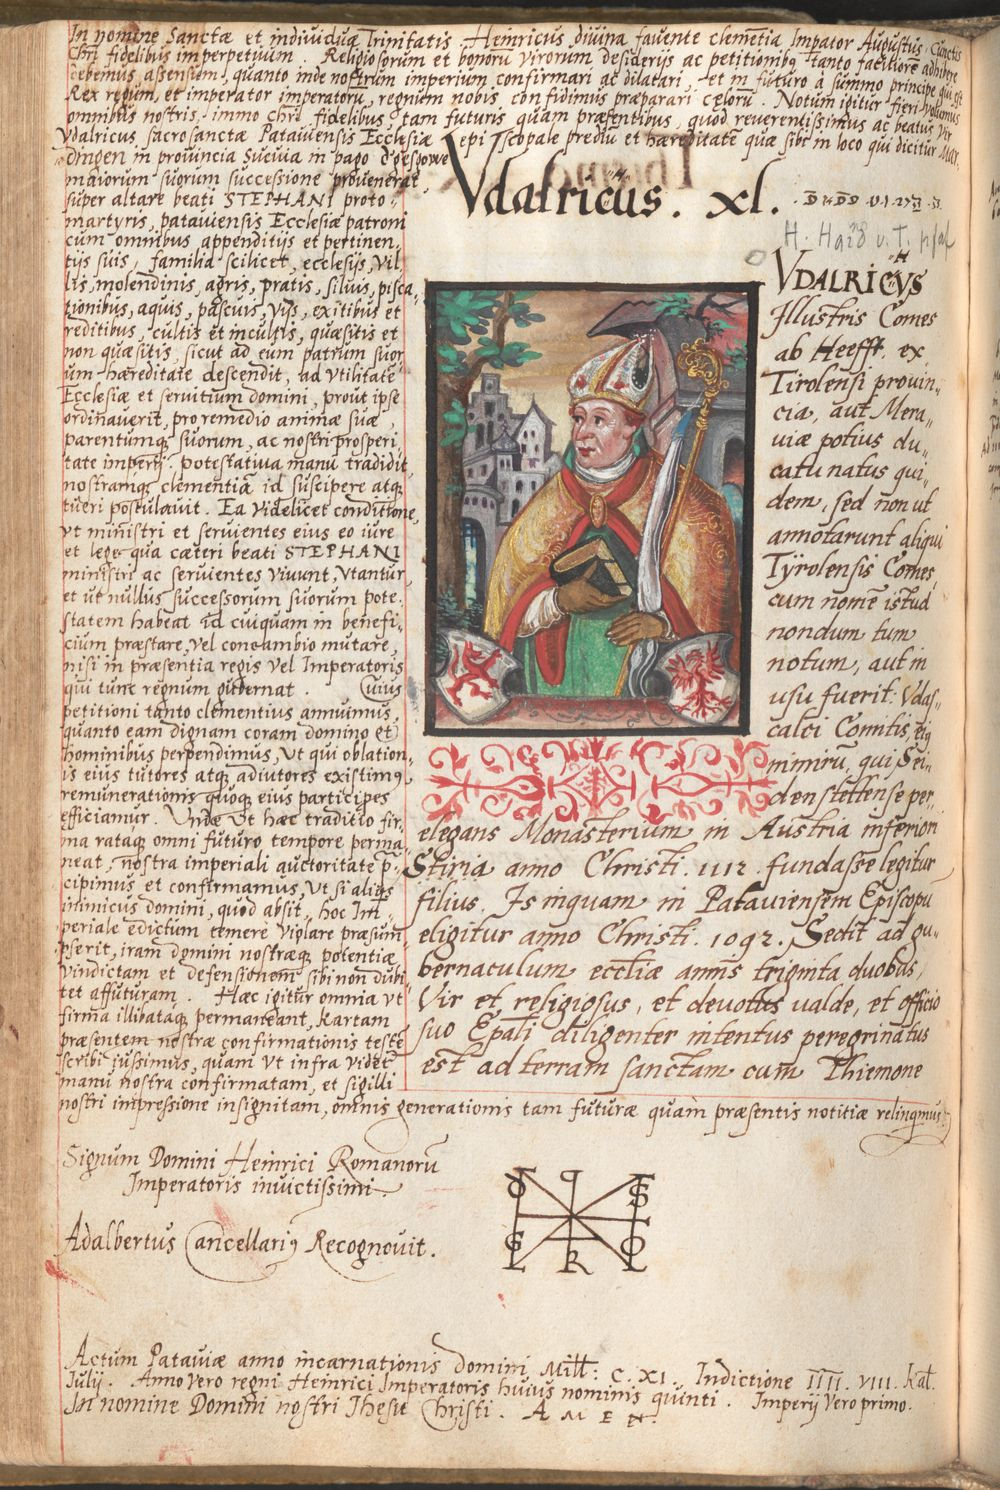 In nomine Sanctæ et indiuiduæ Trinitatis. Heinricus diuina fauente clem̄etia Impator Augustus. Cunctis
Chr̄i fidelibus imperpetuum. Religiosorum et bonorū virorum desiderijs ac petitionibq tanto faciliorē adhibere
debemus assensum, quanto inde nostrum imperium confirmari ac dilatari, et in futuro à summo principe qui est
Rex regum, et imperator imperatorū, regnum nobis confidimus præparari cælorū. Notum igitur fieri volumus
omnibus nostris, immo chr̄i fidelibus, tam futuris quam præsentibus, quod reuerentissimus ac beatus Vir
Vdalricus sacrosanctæ Patauiensis Ecclesiæ episcopale prediū et hæreditatē quæ sibi in loco qui dicitur Mar.
dingen in prouincia Sueuia in pago
maiorum suorum successione prouenerat,
super altare beati STEPHANI proto
martyris, patauiensis Ecclesiæ patroni
cum omnibus appenditijs et pertinen,
tijs suis, familia scilicet, ecclesijs, vil,
lis, molendinis, agris, pratis, siluis, pisca,
tionibus, aquis, pascuis, vijs, exitibus et
reditibus, cultis et incultis, quæsitis et
non quæsitis, sicut ad eum patrum suor
um hæreditate descendit, ad vtilitate
Ecclesiæ et seruitium domini, prout ipse
ordinauerit, pro remedio animæ suæ,
parentumq suorum, ac nostri prosperi
tate imperij. potestatiua manu tradidit,
nostramq clementiā id suscipere atq
tueri postulauit. Ea videlicet conditione,
vt ministri et seruientes eius eo iure
et lege qua cæteri beati STEPHANI
ministri ac seruientes viuunt, vtantur
et ut nullus successorum suorum pote.
statem habeat id cuiquam in benefi,
cium præstare, vel concambio mutare,
nisi in præsentia regis vel Imperatoris
qui tunc regnum gubernat. Cuius
petitioni tanto clementius annuimus,
quanto eam dignam coram domino et
hominibus perpendimus, Vt qui oblation,
is eius tutores atq adiutores existimq
remunerationis quoque eius participes
efficiamur. Vnde Vt hæc traditio fir,
ma rataq omni futuro tempore perma,
neat, nostra imperiali auctoritate p̄,
cipimus et confirmamus, Vt si aliqs
inimicus domini, quod absit, hoc Im,
periale edictum temerè violare præsum,
pserit, iram domini nostræq potentiæ
vindictam et defensionem sibi non dubi
tet affuturam. Hæc igitur omnia vt
firma illibataq permaneant, kartam
præsentem nostræ confirmationis teste
scribi iussimus, quam vt infra videt
manu nostra confirmatam, et sigilli
nostri impressione insignitam, omnis generationis tam futuræ quam præsentis notitiæ relinqmus.
Signum Domini Heinrici Romanorū
Imperatoris inuictissimi.
Adalbertus Cancellariq Recognouit.
Actum Patauiæ anno incarnationis domini Mill: C. XI. Indictione IIII. VIII. kal.
Iulij. Anno vero regni Heinrici Imperatoris huius nominis quinti. Imperij vero primo.
In nomine Domini nostri Jhesu Christi. AMEN.
Vdalricus. xl.
VDALRICVS
Illustris Comes
ab Heefft. ex
Tirolensi prouin,
cia, aut Mera,
uiæ potius du,
catu natus qui
dem, sed non ut
annotarunt aliqui
Tÿrolensis Comes,
cum nomē istud
nondum tum
notum, aut in
usu fuerit. Vdas,
calci Comitis, eiq
nimirū, qui Sei,
denstettense per,
elegans Monasterium in Austria inferiori
Stiria anno Christi. 1112. fundasse legitur
filius. Is inquam in Patauiensem Episcopū
eligitur anno Christi. 1092. Sedit ad gu,
bernaculum eccl̄iæ annis triginta duobus,
Vir et religiosus, et deuotus ualde, et officio
suo Ep̄ali diligenter intentus peregrinatus
est ad terram sanctam cum Thiemone